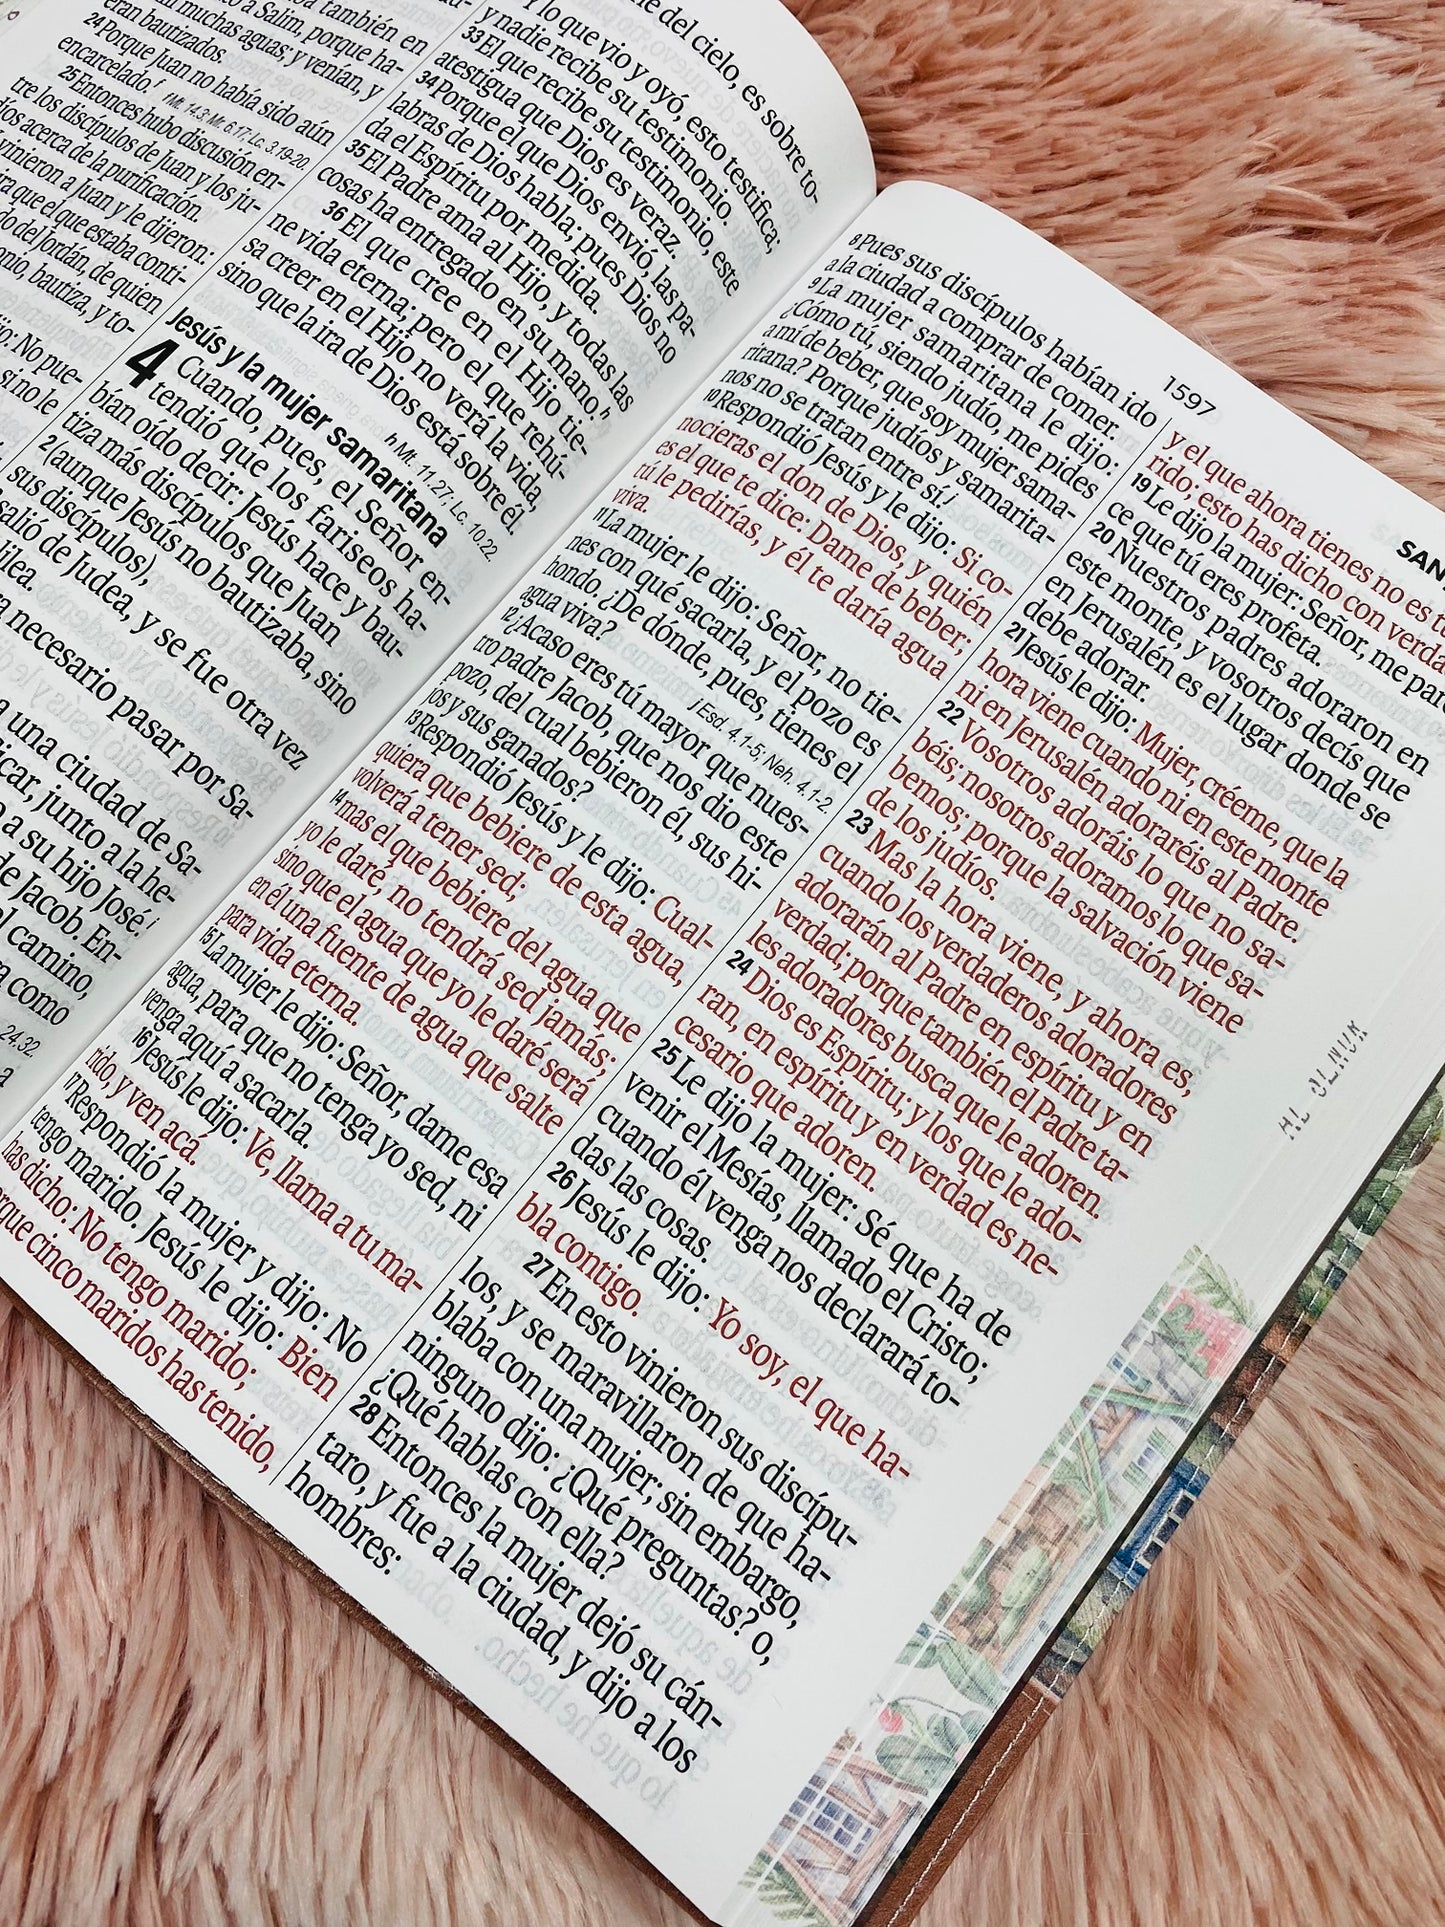 también en
to a Salim, porque ha-
muchas aguas; y venían, y
eran bautizados.
24 Porque Juan no había sido aún
encarcelado. f f Mt. 14.3; Mr. 6.17; Lc. 3.19-20.
25 Entonces hubo discusión en-
tre los discípulos de Juan y los ju-
díos acerca de la purificación.
vinieron a Juan y le dijeron:
que el que estaba conti-
do del Jordán, de quien
bautiza, y to-
No pue-
sino le
del cielo, es sobre to-
y lo que vio y oyó, esto testifica;
y nadie recibe su testimonio.
33 El que recibe su testimonio, este
atestigua que Dios es veraz.
34 Porque el que Dios envió, las pa-
labras de Dios habla; pues Dios no
da el Espíritu por medida.
35 El Padre ama al Hijo, y todas las
cosas ha entregado en su mano. h
36 El que cree en el Hijo tie-
ne vida eterna; pero el que rehú-
sa creer en el Hijo no verá la vida,
sino que la ira de Dios está sobre él.
h Mt. 11.27; Lc. 10.22.
Jesús y la mujer samaritana
4 Cuando, pues, el Señor en-
tendió que los fariseos ha-
bían oído decir: Jesús hace y bau-
tiza más discípulos que Juan
2 (aunque Jesús no bautizaba, sino
sus discípulos),
salió de Judea, y se fue otra vez
necesario pasar por Sa-
a una ciudad de Sa-
junto a la he-
a su hijo José. i
de Jacob. En-
camino,
como
24.32.
1597
SAN
8 Pues sus discípulos habían ido
a la ciudad a comprar de comer.
9 La mujer samaritana le dijo:
¿Cómo tú, siendo judío, me pides
a mí de beber, que soy mujer sama-
ritana? Porque judíos y samarita-
nos no se tratan entre sí. j
10 Respondió Jesús y le dijo: Si co-
nocieras el don de Dios, y quién
es el que te dice: Dame de beber;
tú le pedirías, y él te daría agua
viva.
11 La mujer le dijo: Señor, no tie-
nes con qué sacarla, y el pozo es
hondo. ¿De dónde, pues, tienes el
agua viva? j Esd. 4.1-5; Neh. 4.1-2.
12 ¿Acaso eres tú mayor que nues-
tro padre Jacob, que nos dio este
pozo, del cual bebieron él, sus hi-
jos y sus ganados?
13 Respondió Jesús y le dijo: Cual-
quiera que bebiere de esta agua,
volverá a tener sed;
14 mas el que bebiere del agua que
yo le daré, no tendrá sed jamás;
sino que el agua que yo le daré será
en él una fuente de agua que salte
para vida eterna.
15 La mujer le dijo: Señor, dame esa
agua, para que no tenga yo sed, ni
venga aquí a sacarla.
16 Jesús le dijo: Ve, llama a tu ma-
rido, y ven acá.
17 Respondió la mujer y dijo: No
tengo marido. Jesús le dijo: Bien
has dicho: No tengo marido;
cinco maridos has tenido,
y el que ahora tienes no es tu
rido; esto has dicho con verda
19 Le dijo la mujer: Señor, me par
ce que tú eres profeta.
20 Nuestros padres adoraron en
este monte, y vosotros decís que
en Jerusalén es el lugar donde se
debe adorar.
21 Jesús le dijo: Mujer, créeme, que la
hora viene cuando ni en este monte
ni en Jerusalén adoraréis al Padre.
22 Vosotros adoráis lo que no sa-
béis; nosotros adoramos lo que sa-
bemos; porque la salvación viene
de los judíos.
23 Mas la hora viene, y ahora es,
cuando los verdaderos adoradores
adorarán al Padre en espíritu y en
verdad; porque también el Padre ta-
les adoradores busca que le adoren.
24 Dios es Espíritu; y los que le ado-
ran, en espíritu y en verdad es ne-
cesario que adoren.
25 Le dijo la mujer: Sé que ha de
venir el Mesías, llamado el Cristo;
cuando él venga nos declarará to-
das las cosas.
26 Jesús le dijo: Yo soy, el que ha-
bla contigo.
27 En esto vinieron sus discípu-
los, y se maravillaron de que ha-
blaba con una mujer; sin embargo,
ninguno dijo: ¿Qué preguntas? o,
¿Qué hablas con ella?
28 Entonces la mujer dejó su cán-
taro, y fue a la ciudad, y dijo a los
hombres: